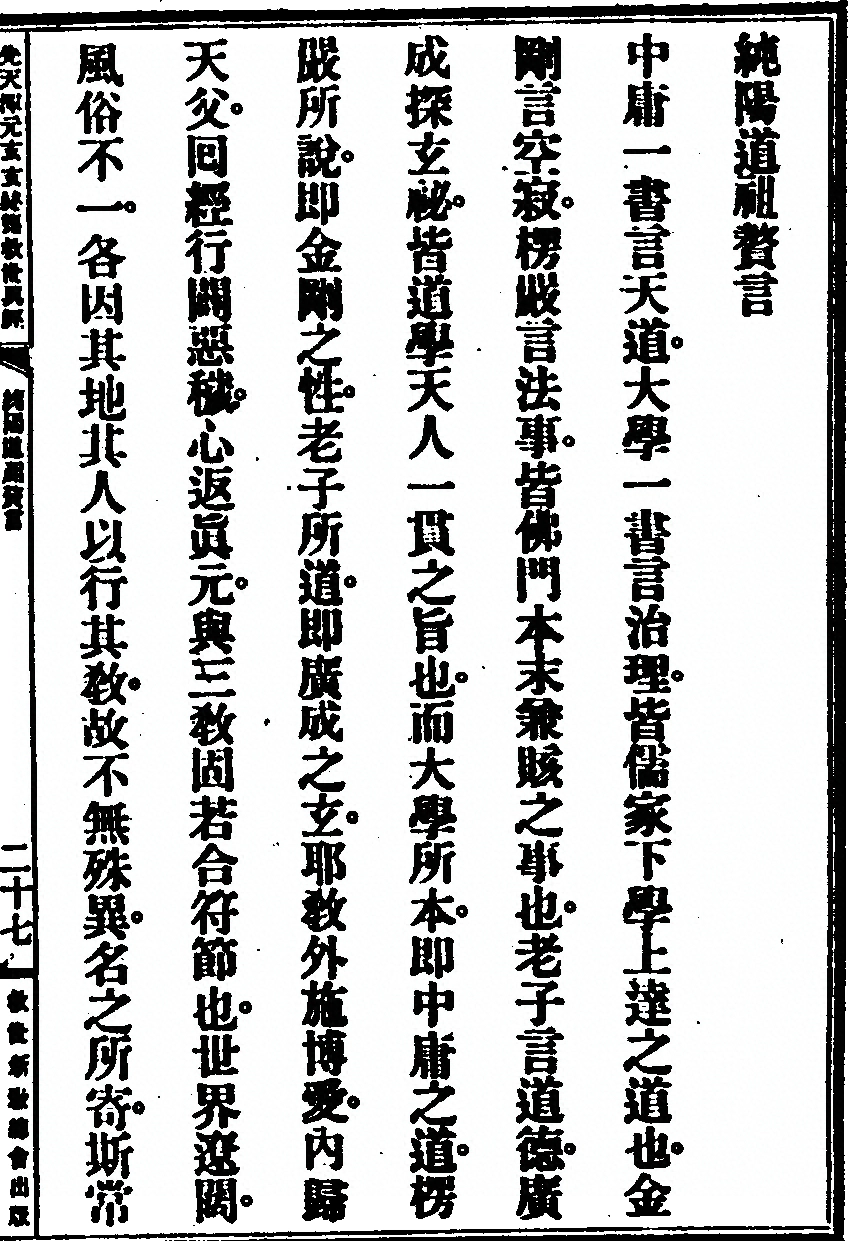 純陽道祖贅言
中庸一書言天道。大學一書言治理。皆儒家下學上達之道也。金
剛言空寂。楞嚴言法事。皆佛門本末兼賅之事也。老子言道德。廣
成探玄祕。皆道學天人一貫之旨也。而大學所本。即中庸之道。楞
嚴所說。即金剛之性。老子所道。即廣成之玄。耶敎外施博愛。內歸
天父。回經行闢惡穢。心返眞元。與三敎固若合符節也。世界遼闊。
風俗不一。各因其地其人以行其敎。故不無殊異。名之所寄。斯常
先天元玄玄救世眞經
純陽道祖贅言
二十七
救世新敎總會出版